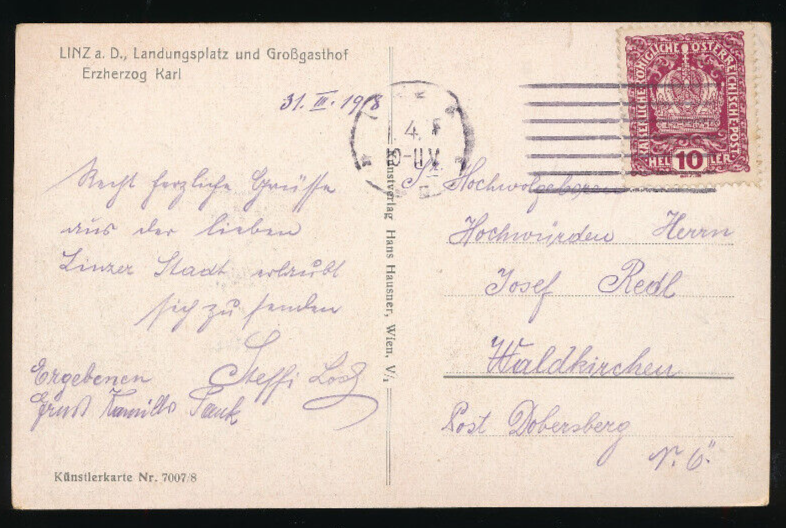 LINZ a. D., Landungsplatz und Großgasthof
Erzherzog Karl
31. III. 1918
Recht herzliche Grüsse
aus der lieben
Linzer Stadt erlaubt
sich zu senden
Ergebenen Steffi
Ernst Kamillo
Künstlerkarte Nr. 7007/8
Kunstverlag Hans Hausner, Wien, V/1
4. F
10-11 V
KAISERLICHE KÖNIGLICHE ÖSTERREICHISCHE POST
HELLER 10
Hochwolgeboren
Hochwürden Herrn
Josef Redl
Waldkirchen
Post Dobersberg
N. Ö.